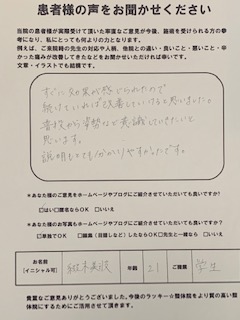 患者様の声をお聞かせください
当院の患者様が実際受けて頂いた率直なご意見が今後、施術を受けられる方の参
考になり、私にとっても何よりの力となります。
例えば、ご来院時の先生の対応や人柄、他院との違い・良いこと・悪いこと・辛
かった痛みが改善してきたなどをお聞かせいただければ幸いです。
文章・イラストでも結構です。
すぐに効果が感じられたので
続けていれば改善していけると思いました。
普段から姿勢など意識していきたいと
思います。
説明もとても分かりやすかったです。
*あなた様のご意見をホームページやブログにご紹介させていただいても良いですか?
☑はい □匿名ならOK □いいえ
*あなた様のお写真もホームページやブログにご紹介させていただいても良いですか?
☑単独でOK □加工(目隠しなど)したならOK □先生と一緒なら □いいえ
お名前
(イニシャル可) 年齢 21 ご職業 学生
貴重なご意見ありがとうございました。今後のラッキー☆整体院をより質の高い整
体院にするためにご活用させて頂きます。